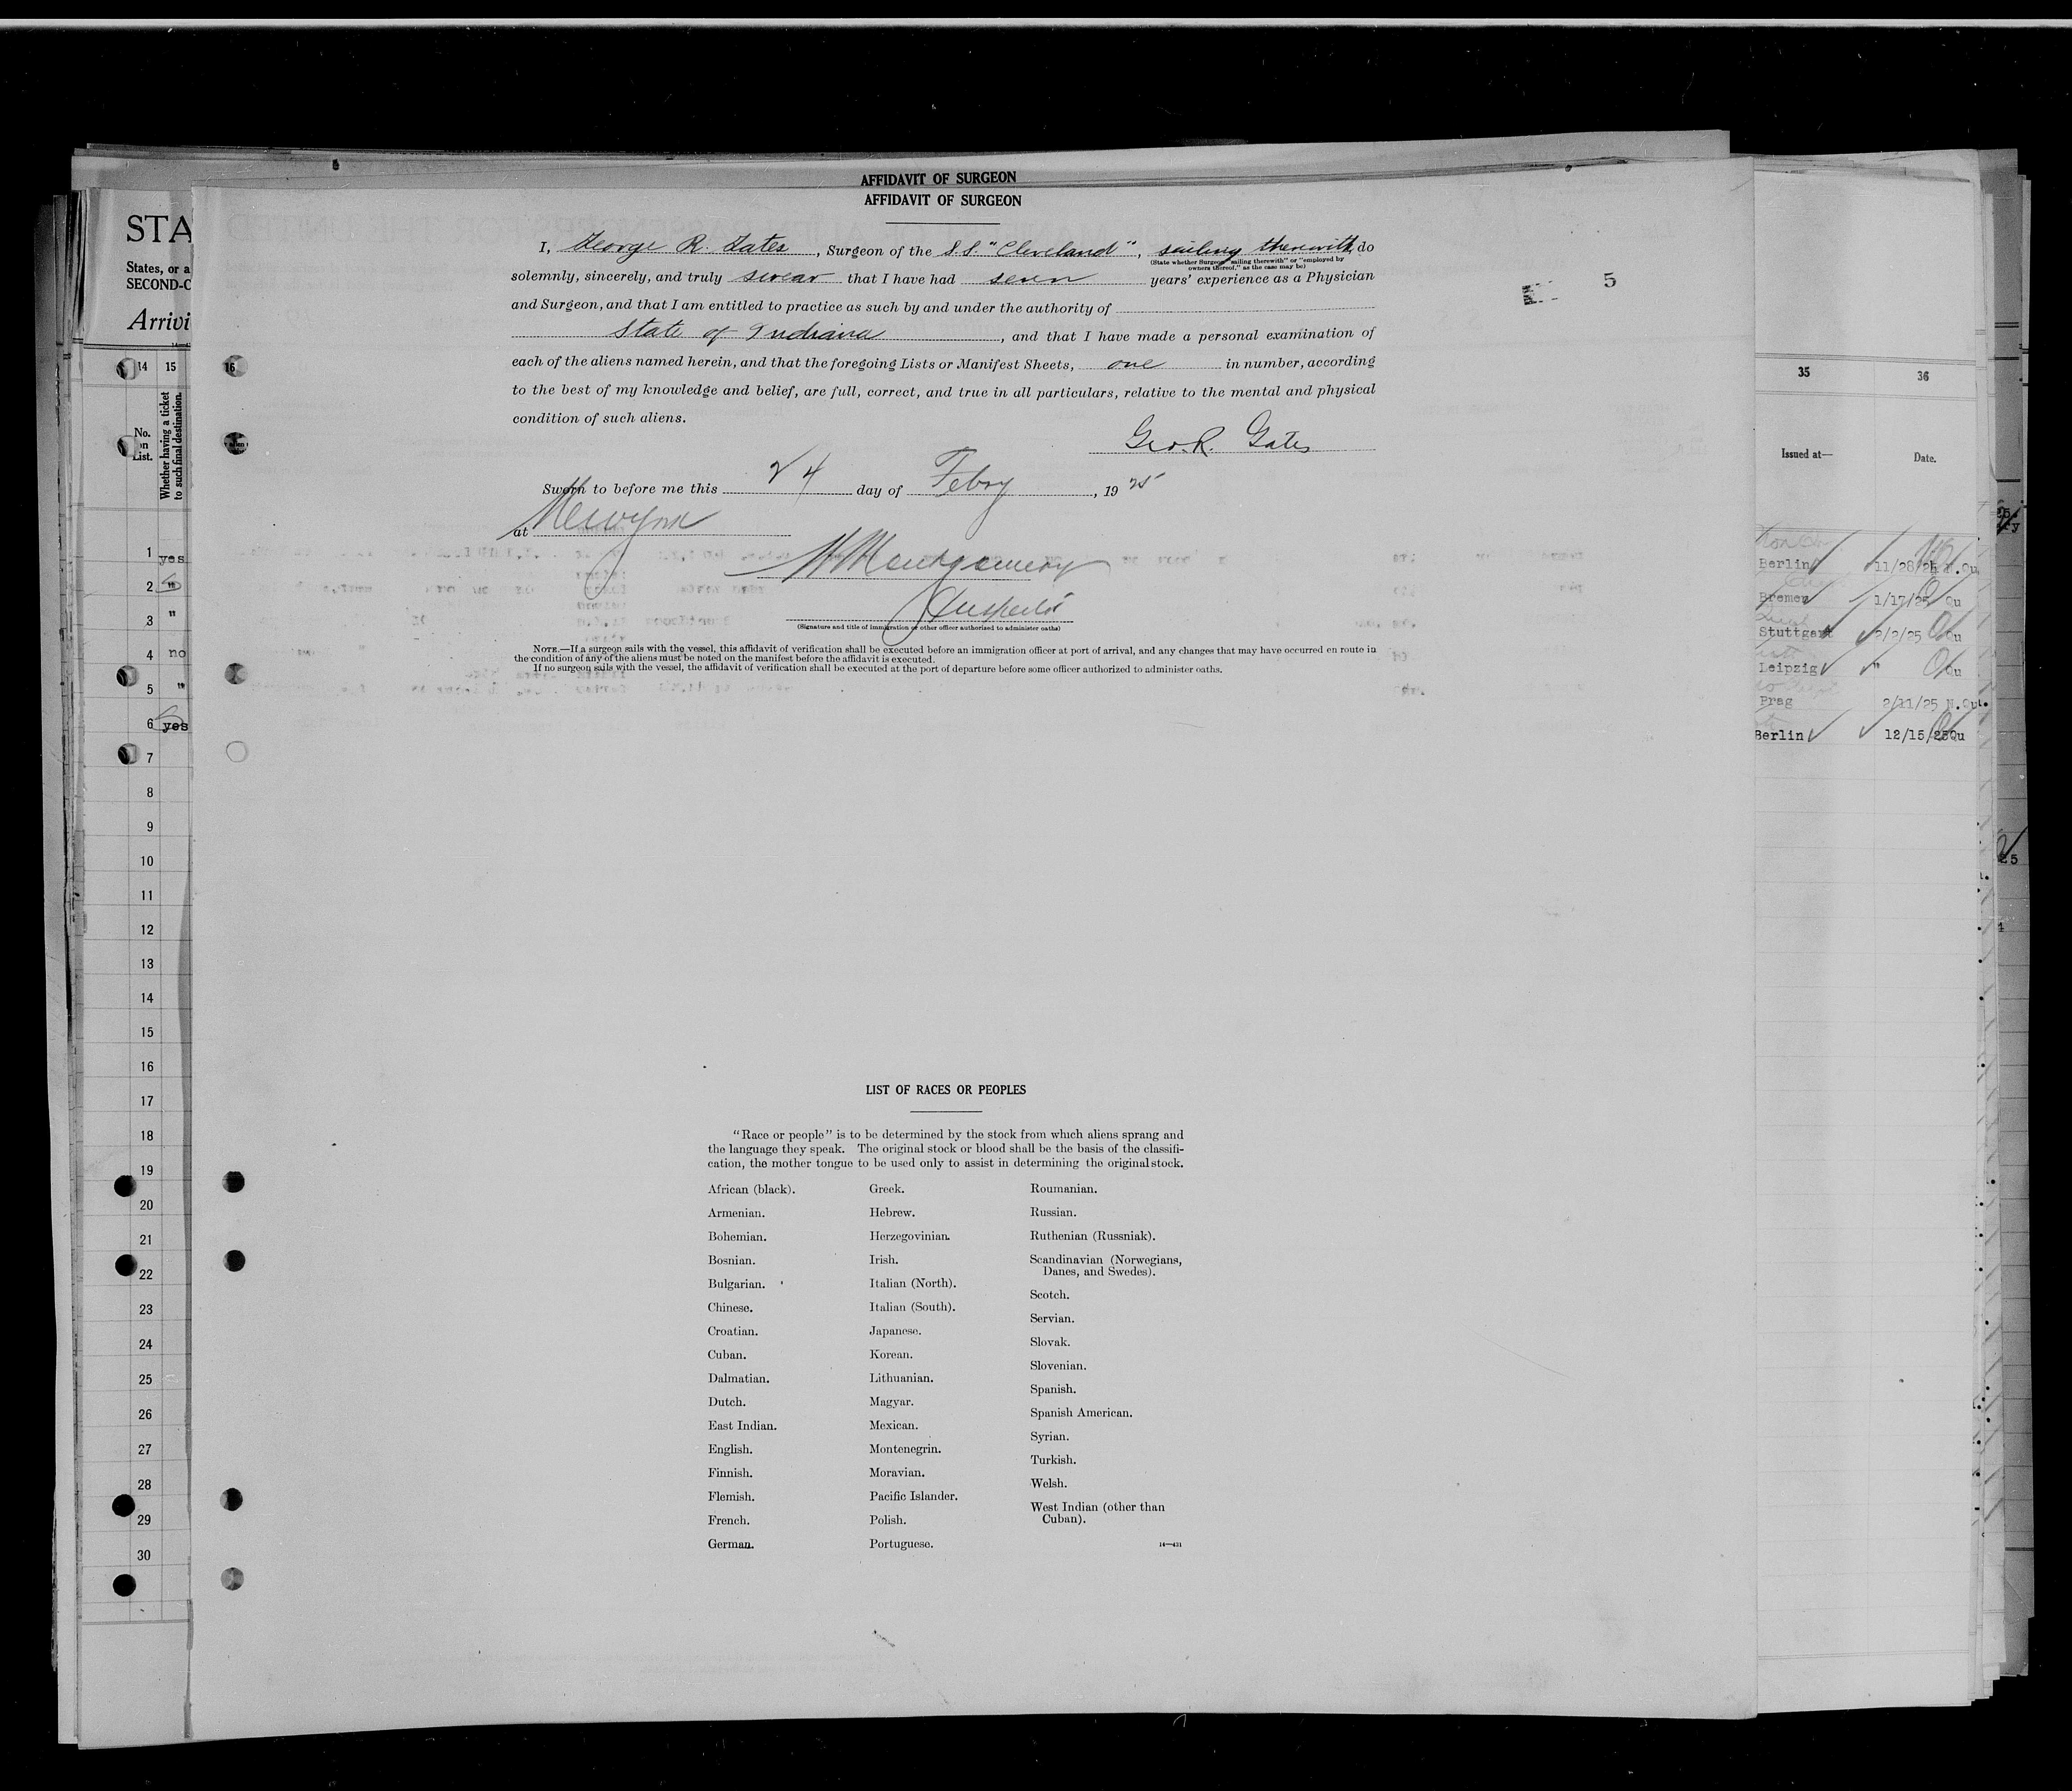 AFFIDAVIT OF SURGEON
AFFIDAVIT OF SURGEON
I, George R. Gates, Surgeon of the S.S. "Cleveland", sailing therewith, do
(State whether Surgeon "sailing therewith" or "employed by
owners thereof," as the case may be)
solemnly, sincerely, and truly swear that I have had seven years' experience as a Physician
and Surgeon, and that I am entitled to practice as such by and under the authority of
State of Indiana, and that I have made a personal examination of
each of the aliens named herein, and that the foregoing Lists or Manifest Sheets, one in number, according
to the best of my knowledge and belief, are full, correct, and true in all particulars, relative to the mental and physical
condition of such aliens.
Geo. R. Gates
Sworn to before me this 24 day of Febry, 1925
at New York
Montgomery
Inspector
(Signature and title of immigration or other officer authorized to administer oaths)
NOTE.—If a surgeon sails with the vessel, this affidavit of verification shall be executed before an immigration officer at port of arrival, and any changes that may have occurred en route in
the condition of any of the aliens must be noted on the manifest before the affidavit is executed.
If no surgeon sails with the vessel, the affidavit of verification shall be executed at the port of departure before some officer authorized to administer oaths.
5
LIST OF RACES OR PEOPLES
"Race or people" is to be determined by the stock from which aliens sprang and
the language they speak. The original stock or blood shall be the basis of the classifi-
cation, the mother tongue to be used only to assist in determining the original stock.
African (black).
Armenian.
Bohemian.
Bosnian.
Bulgarian.
Chinese.
Croatian.
Cuban.
Dalmatian.
Dutch.
East Indian.
English.
Finnish.
Flemish.
French.
German.
Greek.
Hebrew.
Herzegovinian.
Irish.
Italian (North).
Italian (South).
Japanese.
Korean.
Lithuanian.
Magyar.
Mexican.
Montenegrin.
Moravian.
Pacific Islander.
Polish.
Portuguese.
Roumanian.
Russian.
Ruthenian (Russniak).
Scandinavian (Norwegians,
Danes, and Swedes).
Scotch.
Servian.
Slovak.
Slovenian.
Spanish.
Spanish American.
Syrian.
Turkish.
Welsh.
West Indian (other than
Cuban).
14—431
STA
States, or a
SECOND-C
Arrivi
14 15 16
No.
on
List.
Whether having a ticket
to such final destination.
1 yes
2 "
3 "
4 no
5 "
6 yes
7
8
9
10
11
12
13
14
15
16
17
18
19
20
21
22
23
24
25
26
27
28
29
30
35 36
Issued at— Date.
Berlin 11/28/24 N.Qu.
Bremen 1/17/25 Qu
Stuttgart 2/2/25 Qu
Leipzig " Qu
Prag 2/11/25 N.Qu.
Berlin 12/15/25 Qu